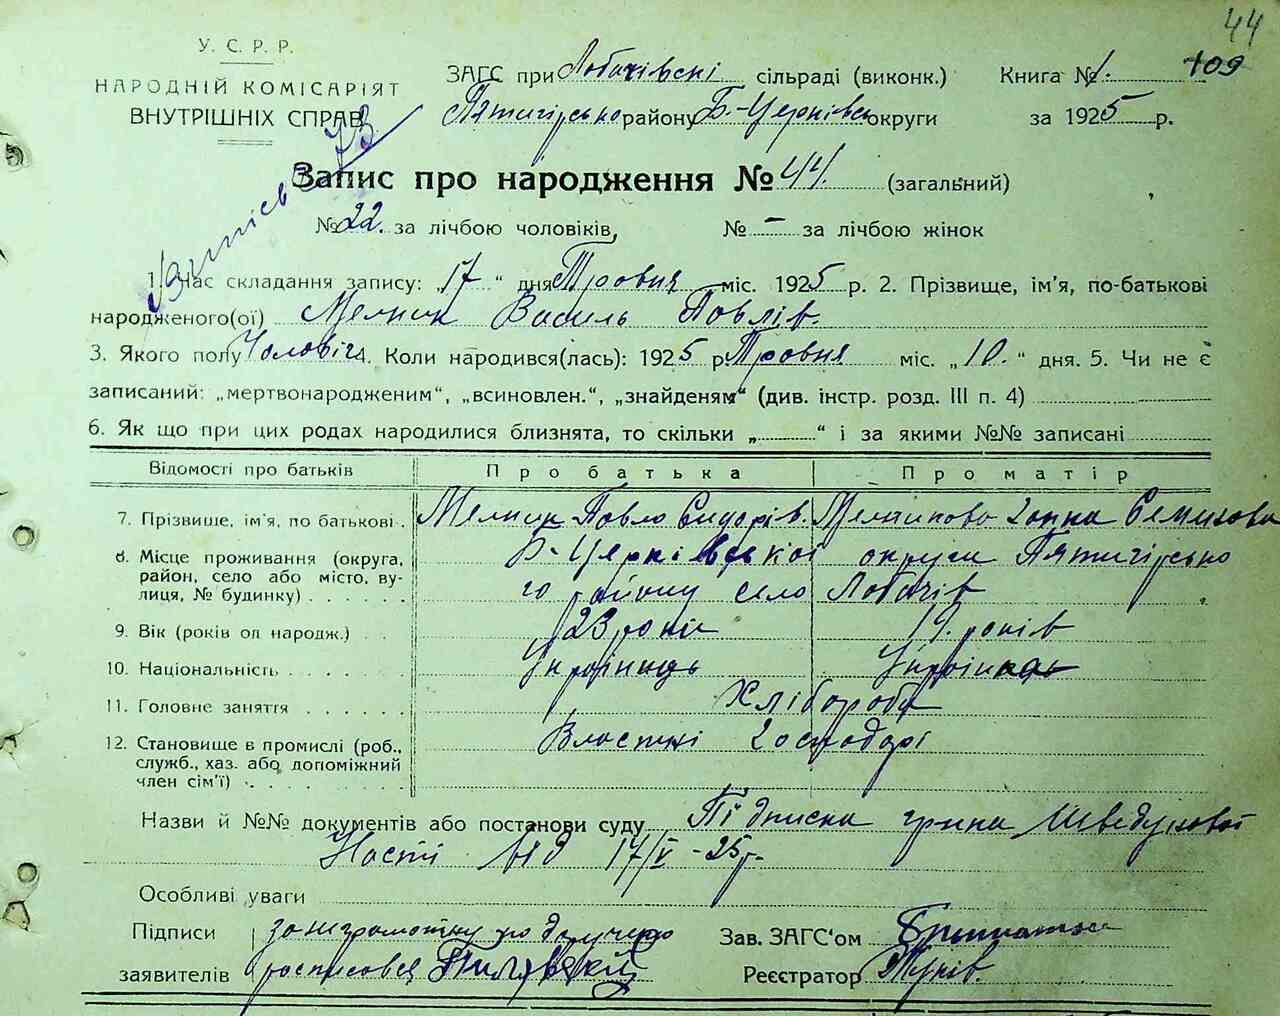 44
У. С. Р. Р.
НАРОДНІЙ КОМІСАРІЯТ
ВНУТРІШНІХ СПРАВ
ЗАГС при Лобачівскі сільраді (виконк.) Книга № 1. 109
Пятигірсько району Б.-Церківсь округи за 1925 р.
73
Запис про народження № 44. (загальний)
№ 22. за лічбою чоловіків, № – за лічбою жінок
1. Час складання запису: „17“ дня Тровня міс. 1925 р. 2. Прізвище, ім'я, по-батькові
народженого(ої) Мелник Василь Павлів.
3. Якого полу Чоловіч 4. Коли народився(лась): 1925 р. Тровня міс. „10.“ дня. 5. Чи не є
записаний: „мертвонародженим“, „всиновлен.“, „знайденям“ (див. інстр. розд. III п. 4)
6. Як що при цих родах народилися близнята, то скільки „ “ і за якими №№ записані
Відомості про батьків Про батька Про матір
7. Прізвище, ім'я, по батькові Мелник Павло Сидорів. Мельникова Ганна
8. Місце проживання (округа, район, село або місто, вулиця, № будинку) Б-Церківської округи Пятигірсько
го району село Лобачів
9. Вік (років од народж.) 23 роки 19. років
10. Національність Українець Українка
11. Головне заняття Хлібороби
12. Становище в промислі (роб., служб., хаз. або допоміжний член сім'ї) Властні Господарі
Назви й №№ документів або постанови суду Підписка
Насті від 17/V -25р.
Особливі уваги
Підписи за неграмотну по доручен
заявителів росписовся
Зав. ЗАГС'ом
Реєстратор